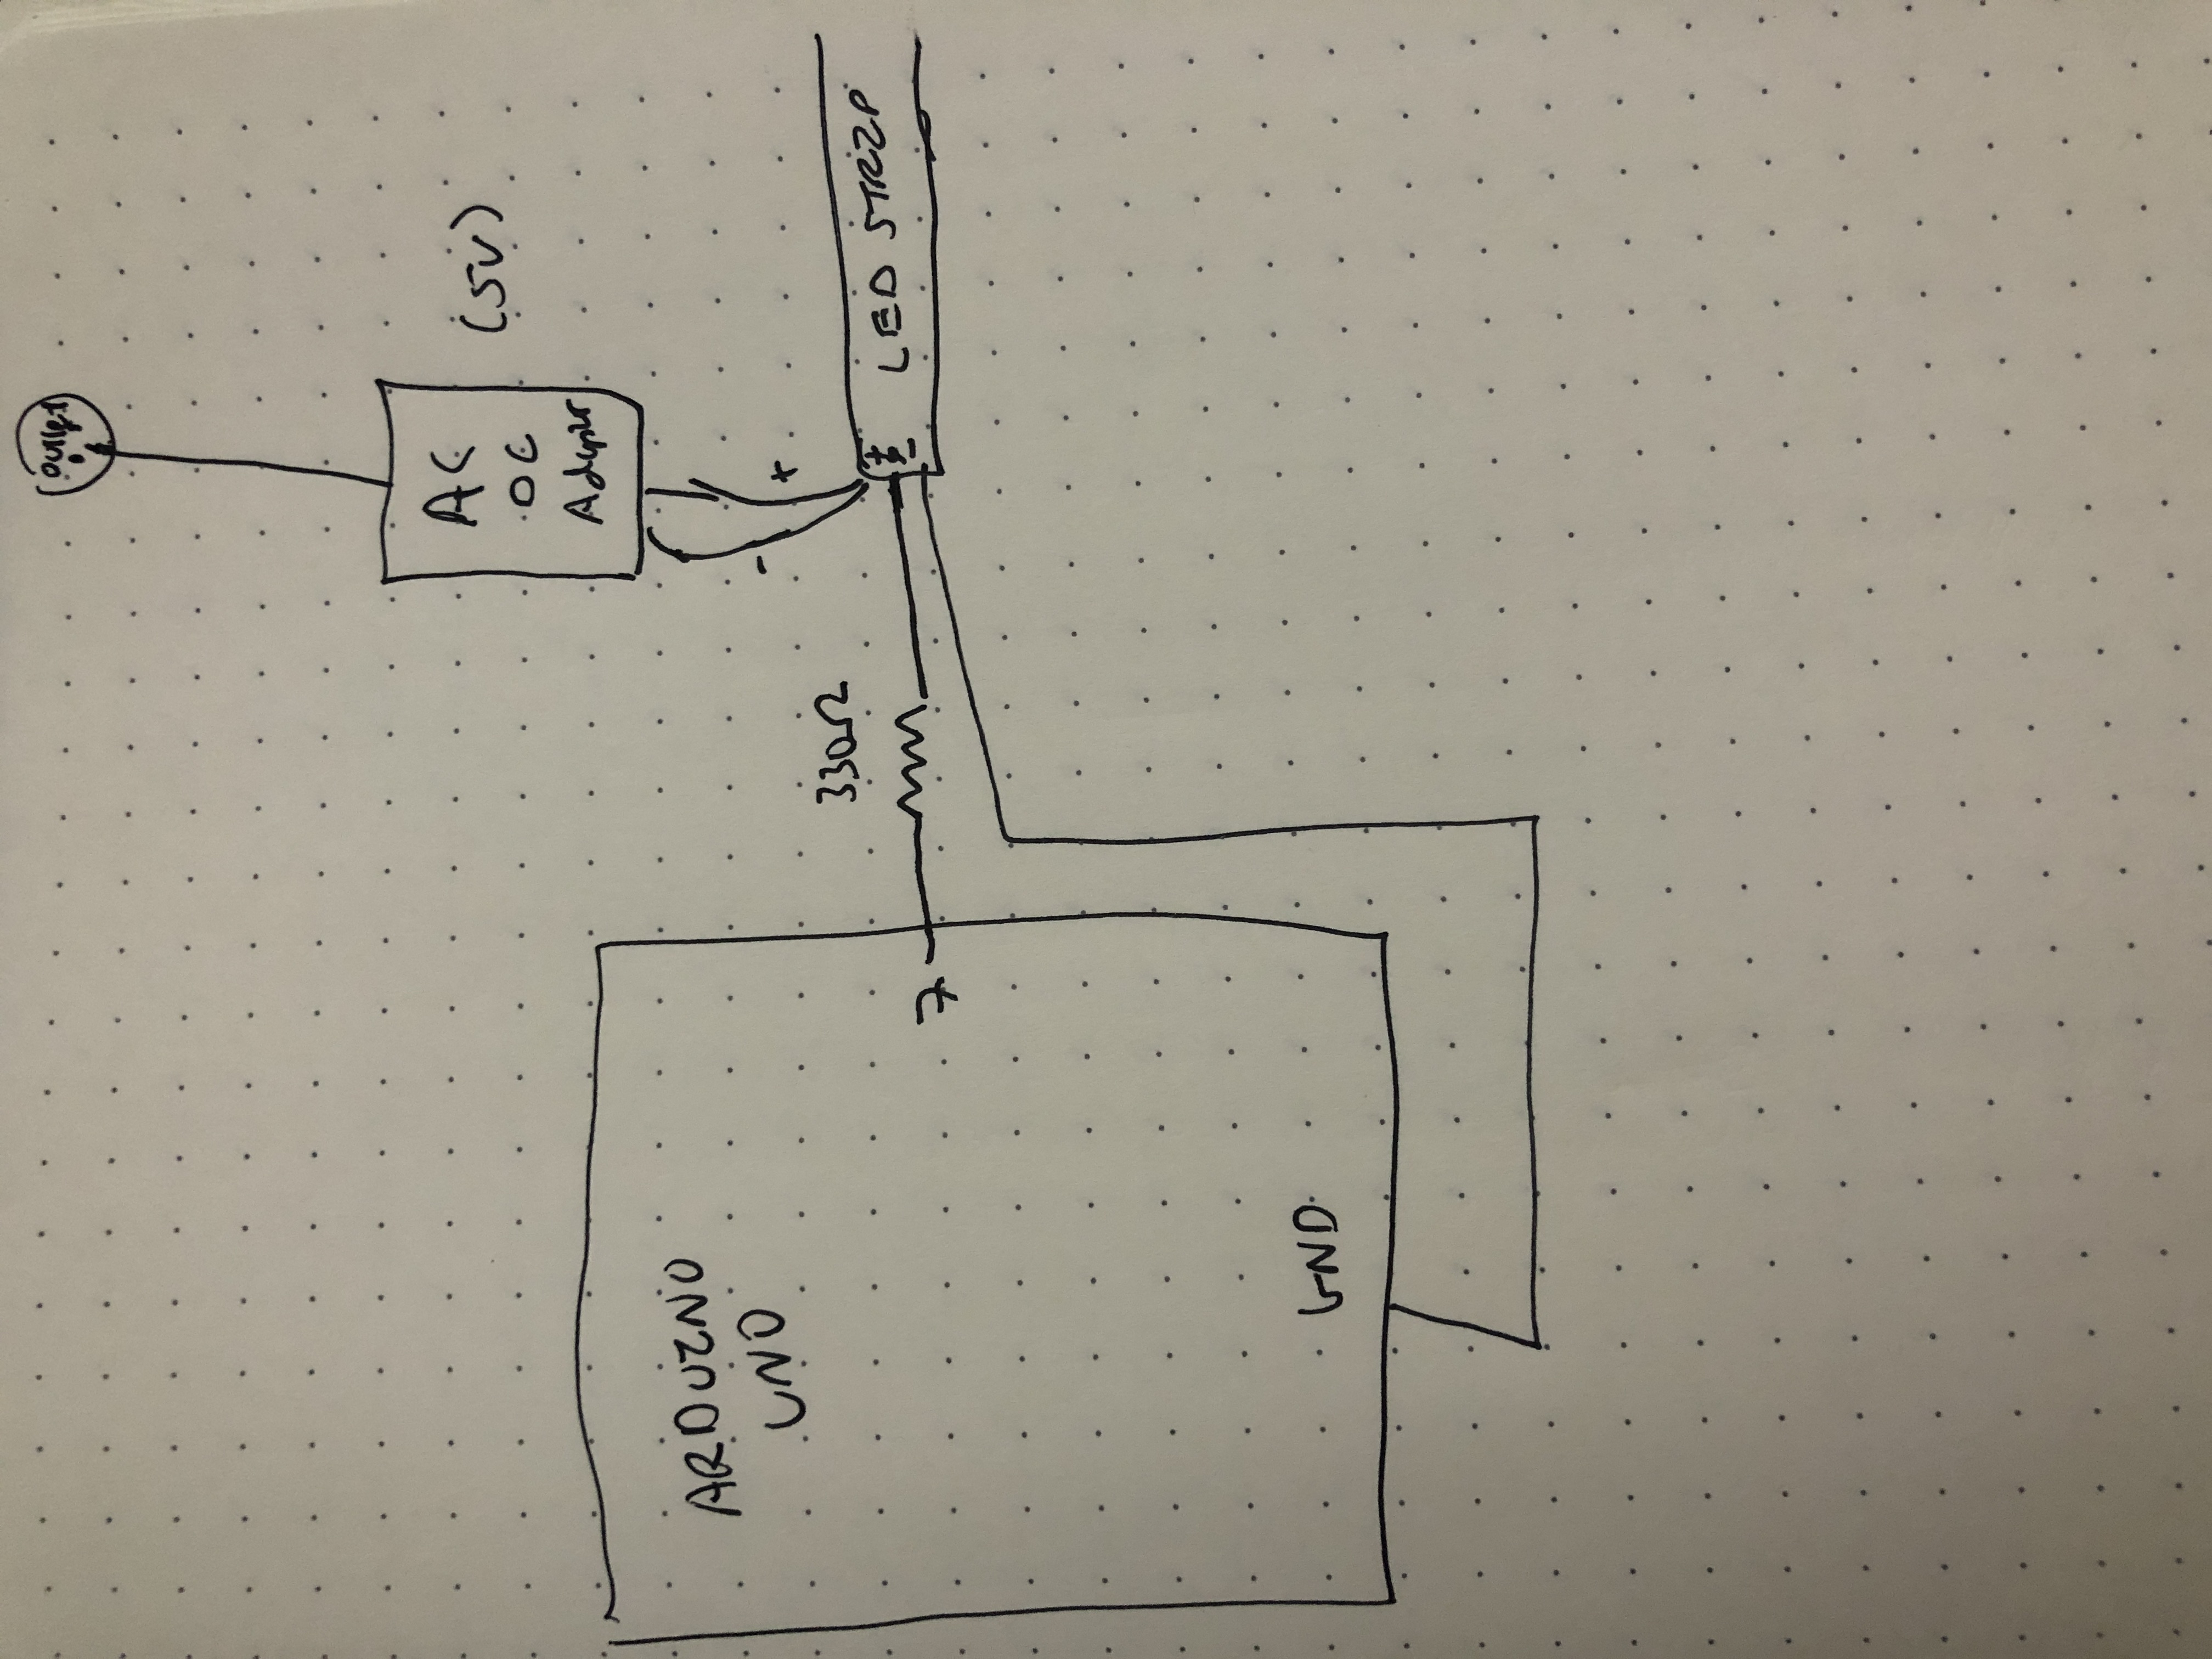 outlet
AC
DC
Adapter
(5V)
ARDUINO
UNO
330Ω
-
+
7
+
-
LED STRIP
GND